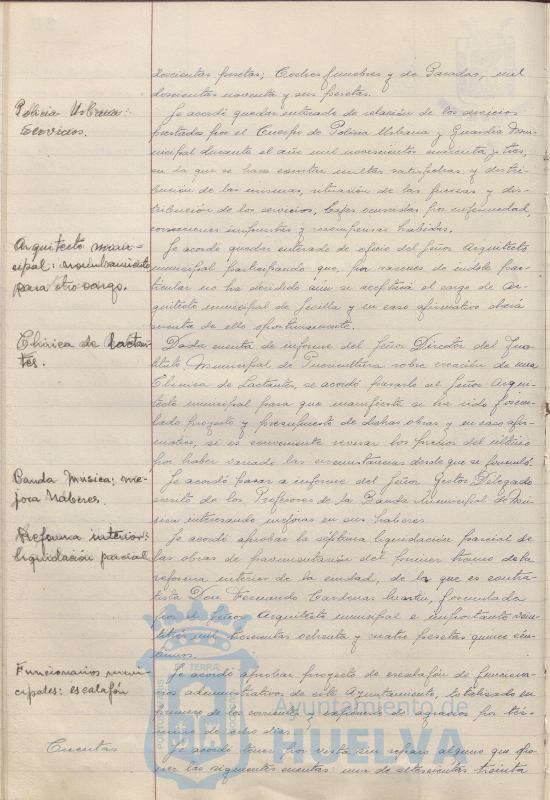 doscientas pesetas; Coches funebres y de Paradas, mil
doscientas noventa y seis pesetas.
Policia Urbana:
Servicios.
Se acordó quedar enterado de relación de los servicios
prestados por el Cuerpo de Policia Urbana y Guardia Mu-
nicipal durante el año mil novecientos cuarenta y tres,
en la que se hace constar multas satisfechas y distri-
bución de las mismas, situación de las fuerzas y dis-
tribución de los servicios, bajas ocurridas por enfermedad,
correcciones impuestas y recompensas habidas.
Arquitecto muni-
cipal: nombramiento
para otro cargo.
Se acordó quedar enterado de oficio del Señor Arquitecto
municipal participando que, por razones de indole par-
ticular no ha decidido aún se aceptará el cargo de Ar-
quitecto municipal de Sevilla y en caso afirmativo dará
cuenta de ello oportunamente.
Clinica de Lactan-
tes.
Dada cuenta de informe del Señor Director del Ins-
tituto Municipal de Puericultura sobre creación de una
Clinica de Lactantes, se acordó pasarlo al Señor Arqui-
tecto municipal para que manifieste si ha sido formu-
lado proyecto y presupuesto de dichas obras y en caso afir-
mativo, si es conveniente revisar los precios del último
por haber variado las circunstancias desde que se formuló.
Banda Musica; me-
jora haberes.
Se acordó pasar a informe del Señor Gestor Delegado
escrito de los Profesores de la Banda Municipal de Mú-
sica interesando mejoras en sus haberes.
Reforma interior:
liquidación parcial
Se acordó aprobar la septima liquidación parcial de
las obras de pavimentación del primer tramo de la
reforma interior de la ciudad, de la que es contra-
tista Don Fernando Cardenas, formulada
por el Señor Arquitecto municipal e importante vein-
titrés mil trescientas ochenta y cuatro pesetas quince cén-
timos.
Funcionarios muni-
cipales: escalafón
Se acordó aprobar proyecto de escalafón de funciona-
rios administrativos de este Ayuntamiento, totalizado en
primero de los corrientes y exponerlo de agravios por tér-
mino de ocho dias.
Cuentas
Se acordó tener por vista sin reparo alguno que opo-
ner las siguientes cuentas: una de setecientas treinta
Ayuntamiento de
HUELVA